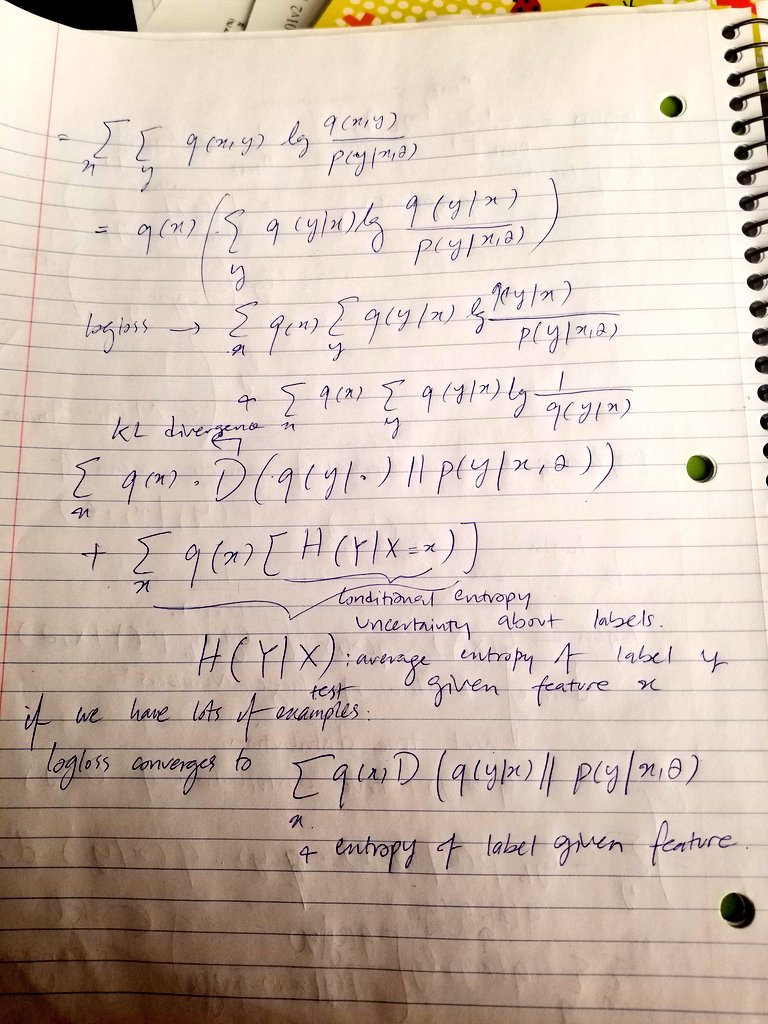 01v2
= Σ_x Σ_y q(x,y) lg q(x,y) / p(y|x,θ)
= q(x) ( Σ_y q(y|x) lg q(y|x) / p(y|x,θ) )
logloss → Σ_x q(x) Σ_y q(y|x) lg q(y|x) / p(y|x,θ)
+ Σ_x q(x) Σ_y q(y|x) lg 1 / q(y|x)
KL divergence
Σ_x q(x) . D ( q(y|.) || p(y|x,θ))
+ Σ_x q(x) [ H(Y|X=x) ]
Conditional entropy
uncertainty about labels.
H(Y|X) : average entropy of label y
given feature x
if we have lots of test examples:
logloss converges to Σ_x q(x) D ( q(y|x) || p(y|x,θ)
+ entropy of label given feature.